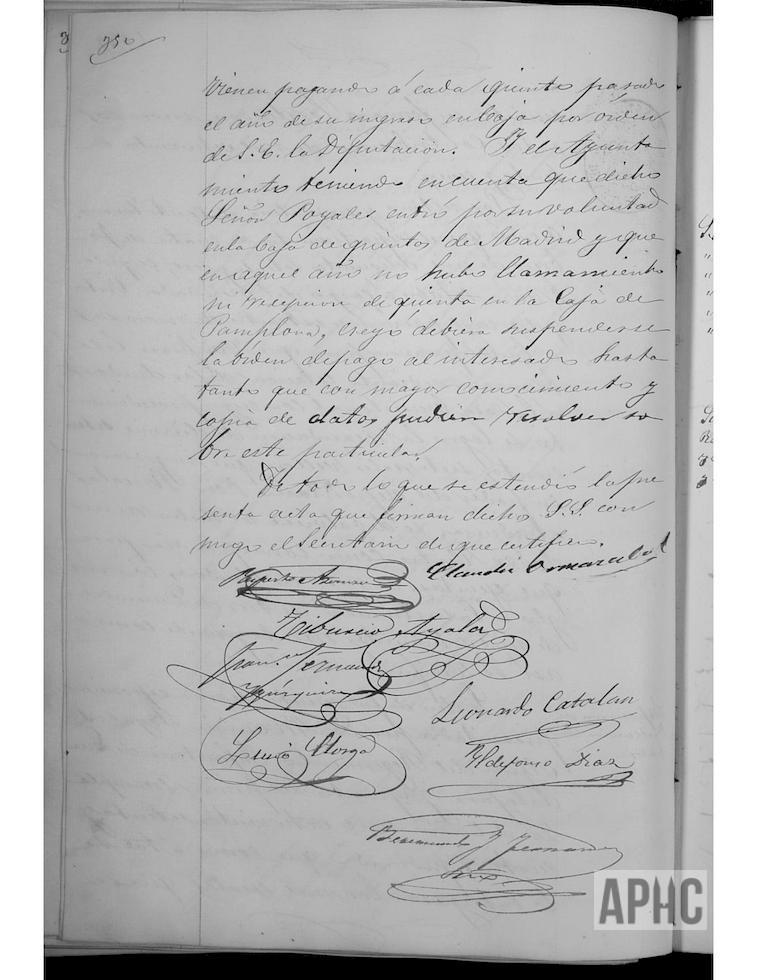 350
vienen pagando á cada quinto pasado
el año de su ingreso en Caja por orden
de S. E. la Diputación. Y el Ayunta
miento teniendo en cuenta que dicho
Señor Poyales entró por su voluntad
en la Caja de quintos de Madrid y que
en aquel año no hubo llamamiento
ni recepcion de quinta en la Caja de
Pamplona, creyó debiera suspenderse
la órden de pago al interesado hasta
tanto que con mayor conocimiento y
copia de datos pudiera resolver so
bre este particular.
De todo lo que se estendió la pre
senta acta que firman dicho S.S. con
migo el Secretario de que certifico.
Ruperto
Claudio
Tiburcio Ayala
Fernandez
Leonardo Catalan
Ildefonso Diaz
Bermundo Fernandez
APHC